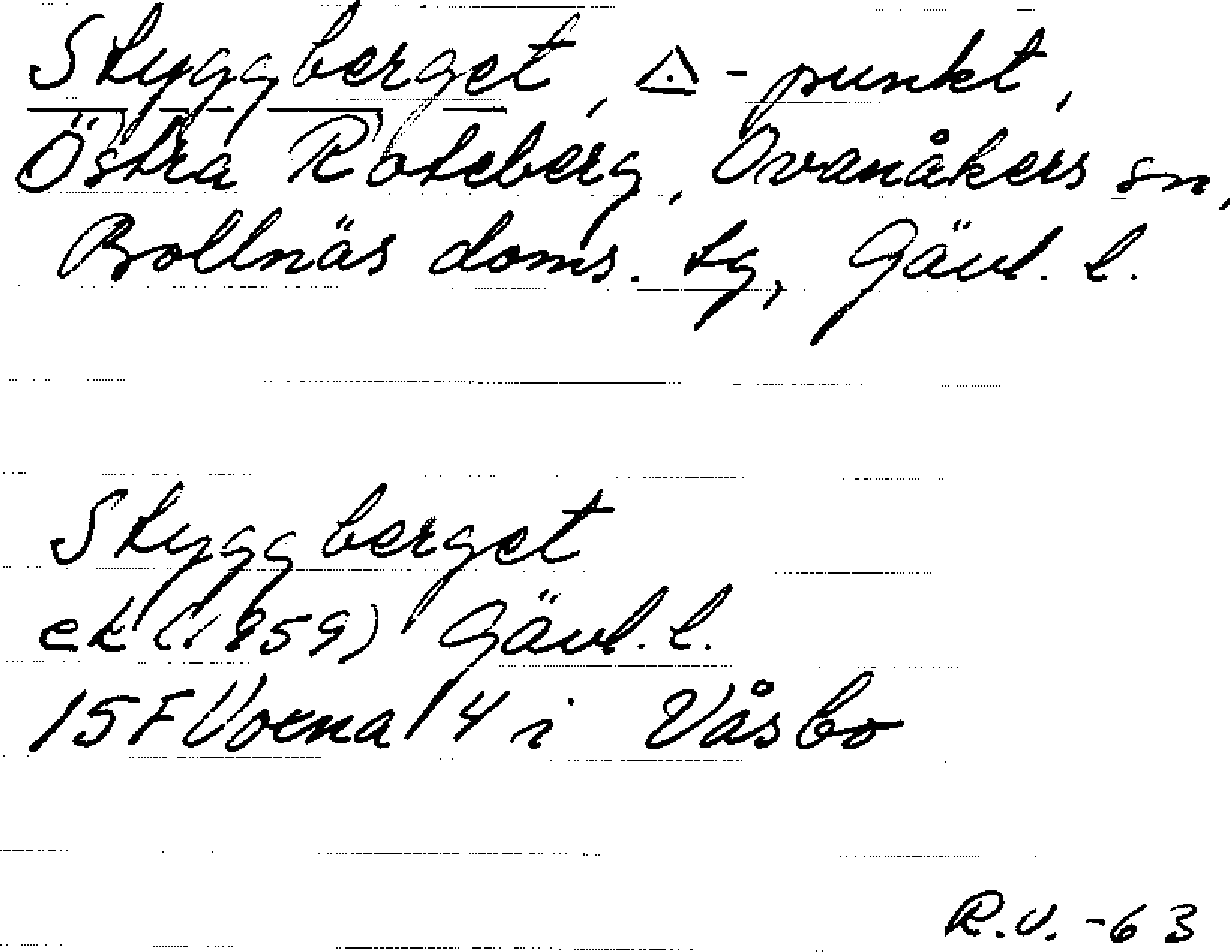 Skyggberget, △-punkt,
Östra Roteberg, Ovanåkers sn,
Bollnäs doms. tg, Gävl. l.
Skyggberget
ek (1959) Gävl. l.
15F Voxna 4 i Våsbo
R.V. -63